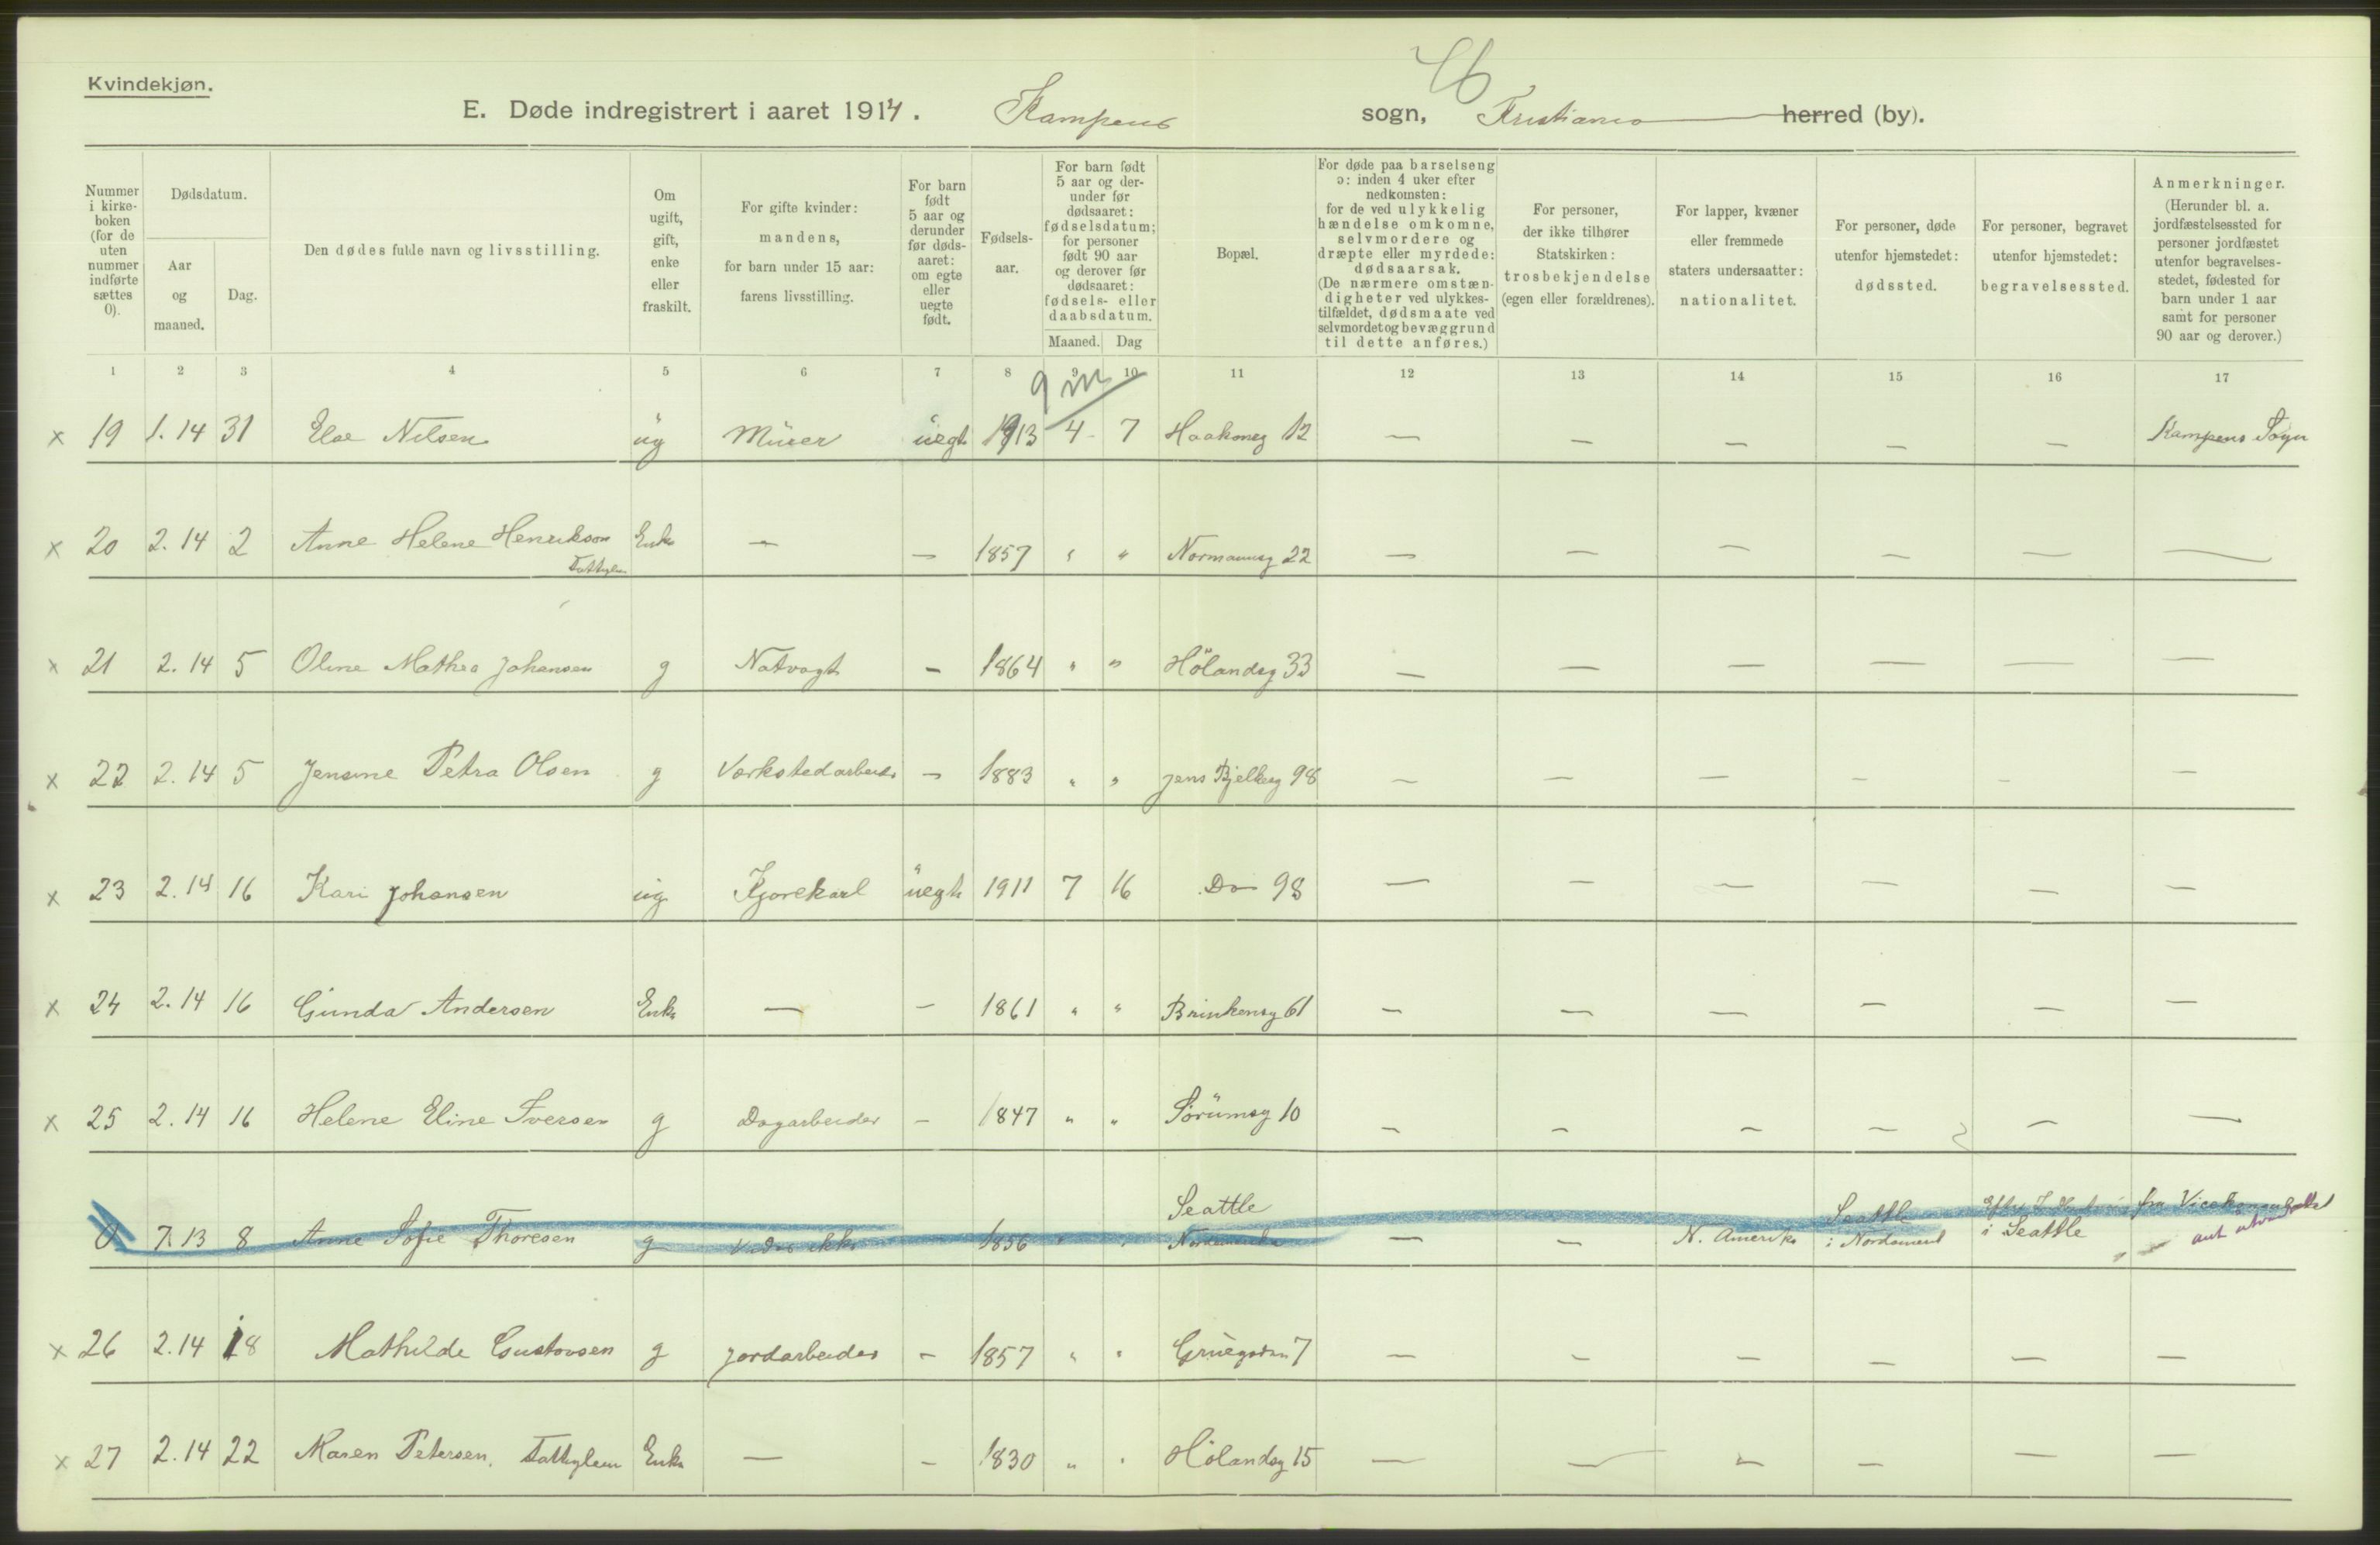 Kvindekjøn.
E. Døde indregistrert i aaret 1914. Kampens sogn, Kristiania herred (by).
Nummer i kirke- boken (for de uten nummer indførte sættes 0).
Dødsdatum.
Aar og maaned.
Dag.
Den dødes fulde navn og livsstilling.
Om ugift, gift, enke eller fraskilt.
For gifte kvinder: mandens, for barn under 15 aar: farens livsstilling.
For barn født 5 aar og derunder før døds- aaret: om egte eller uegte født.
Fødsels- aar.
For barn født 5 aar og der- under før dødsaaret: fødselsdatum; for personer født 90 aar og derover før dødsaaret: fødsels- eller daabsdatum.
Maaned. Dag
Bopæl.
For døde paa barselseng ɔ: inden 4 uker efter nedkomsten: for de ved ulykkelig hændelse omkomne, selvmordere og dræpte eller myrdede: dødsaarsak. (De nærmere omstæn- digheter ved ulykkes- tilfældet, dødsmaate ved selvmordet og bevæggrund til dette anføres.)
For personer, der ikke tilhører Statskirken: trosbekjendelse (egen eller forældrenes).
For lapper, kvæner eller fremmede staters undersaatter: nationalitet.
For personer, døde utenfor hjemstedet: dødssted.
For personer, begravet utenfor hjemstedet: begravelsessted.
Anmerkninger. (Herunder bl. a. jordfæstelsessted for personer jordfæstet utenfor begravelses- stedet, fødested for barn under 1 aar samt for personer 90 aar og derover.)
1 2 3 4 5 6 7 8 9 10 11 12 13 14 15 16 17
9 m
x 19 1.14 31 Else Nilsen ug Murer uegt 1913 4 7 Haakonsg 12 — — — — — Kampens Sogn
x 20 2.14 2 Anne Helene Henriksen Enke — — 1857 " " Normannsg 22 — — — — — —
Fattiglem
x 21 2.14 5 Oline Mathea Johansen g Natvagt — 1864 " " Hölandsg 33 — — — — — —
x 22 2.14 5 Jensine Petra Olsen g Værkstedarbeider — 1883 " " Jens Bjelkesg 98 — — — — — —
x 23 2.14 16 Kari Johansen ug Kjørekarl uegte 1911 7 16 Do 98 — — — — — —
x 24 2.14 16 Gunda Andersen Enke — — 1861 " " Brinkensg 61 — — — — — —
x 25 2.14 16 Helene Eline Iversen g Dagarbeider — 1847 " " Sörumsg 10 — — — — — —
Seattle Seattle
0 7.13 8 Anne Sofie Thoresen g Vides ikke 1856 Nordamerika — — N. Amerika i Nordamerik i Seattle
x 26 2.14 18 Mathilde Gustavsen g Jordarbeider — 1857 " " 7 — — — — — —
x 27 2.14 22 Maren Petersen, Fattiglem Enke — — 1830 " " Hölandsg 15 — — — — — —